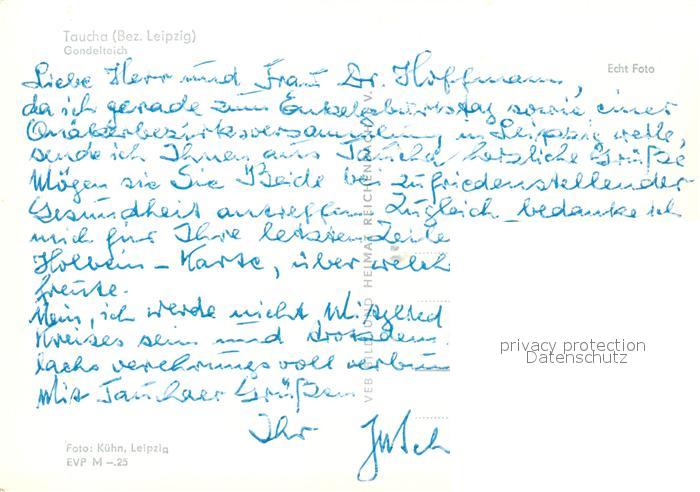 Taucha (Bez. Leipzig)
Gondelteich
Echt Foto
Liebe Herr und Frau Dr. Hoffmann,
da ich gerade zum Enkelgeburtstag sowie einer
Quäkerbezirksversammlung in Leipzig weile,
sende ich Ihnen aus Taucha herzliche Grüße
Mögen sie Sie Beide bei zufriedenstellender
Gesundheit antreffen. Zugleich bedanke ich
mich für Ihre letzten Zeile
Holbein - Karte, über welch
freute.
Nein, ich werde nicht Mitglied
Kreises sein und trotzdem
lachs verehrungsvoll verbun
Mit Tauchaer Grüßen
Ihr
VEB BILD UND HEIMAT REICHENBACH V.
privacy protection
Datenschutz
Foto: Kühn, Leipzig
EVP M -.25